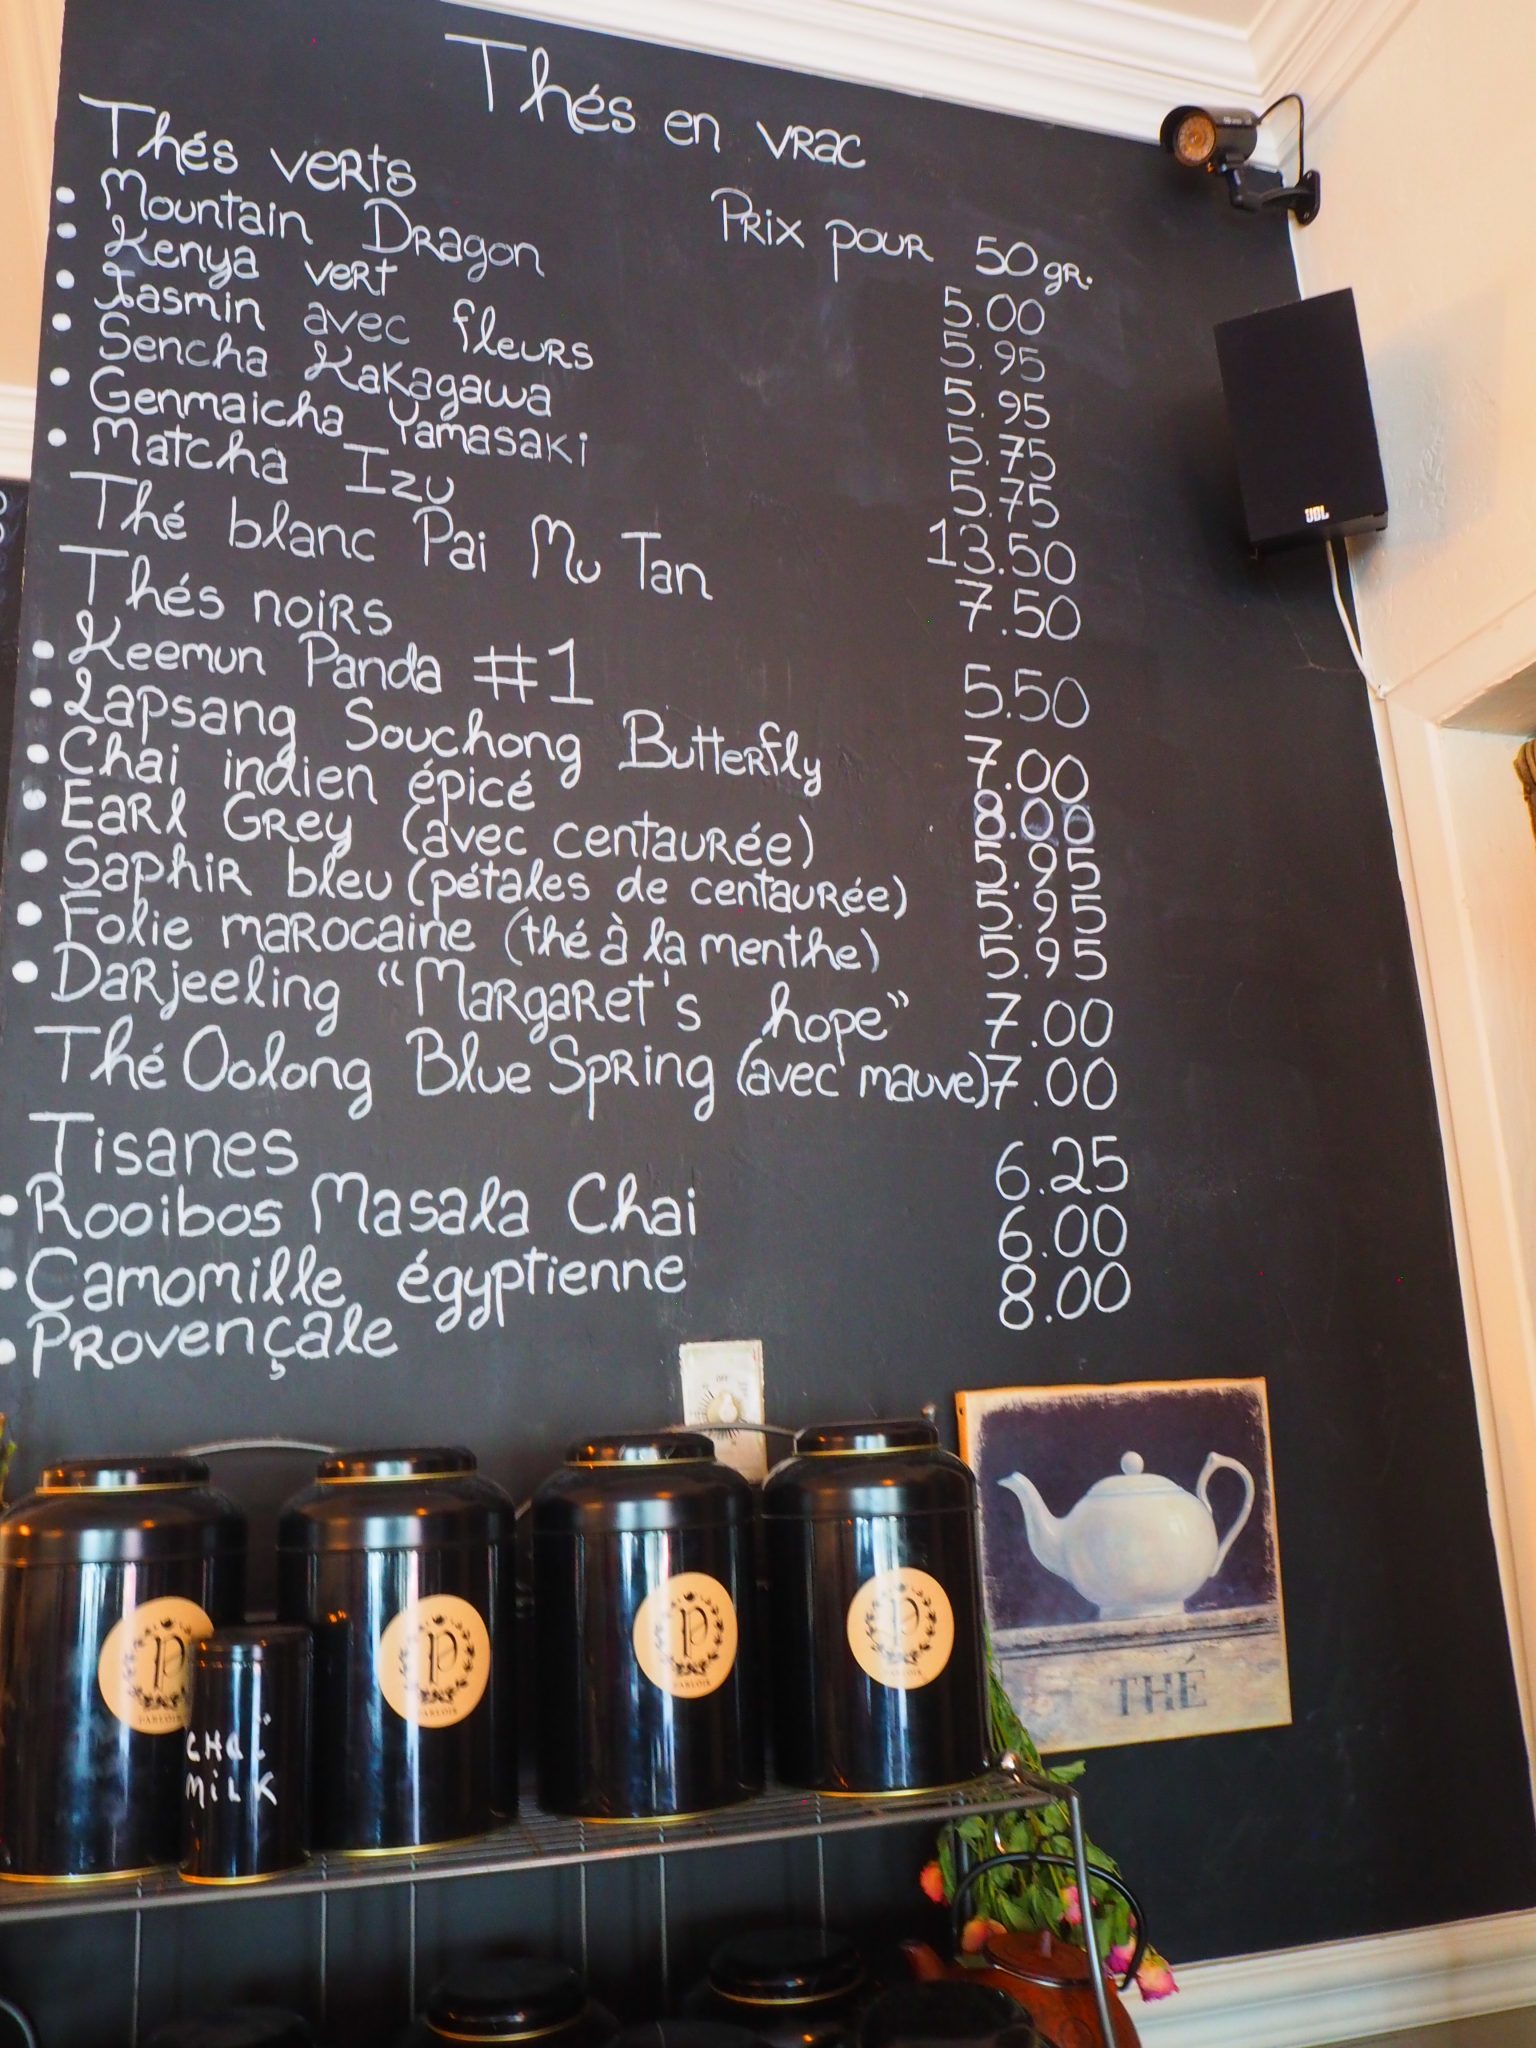 Thés en vrac
Thés verts
Prix pour 50gr.
• Mountain Dragon 5.00
• Kenya vert 5.95
• Jasmin avec fleurs 5.95
• Sencha Kakagawa 5.75
• Genmaicha Yamasaki 5.75
• Matcha Izu 13.50
Thé blanc Pai Mu Tan 7.50
Thés noirs
• Keemun Panda #1 5.50
• Lapsang Souchong Butterfly 7.00
• Chai indien épicé 8.00
• Earl Grey (avec centaurée) 5.95
• Saphir bleu (pétales de centaurée) 5.95
• Folie marocaine (thé à la menthe) 5.95
• Darjeeling "Margaret's hope" 7.00
Thé Oolong Blue Spring (avec mauve) 7.00
Tisanes
• Rooibos Masala Chai 6.25
• Camomille égyptienne 6.00
• Provençale 8.00
JBL
P
PARLOIR
P
PARLOIR
P
PARLOIR
P
PARLOIR
CHAÏ
MILK
THÉ